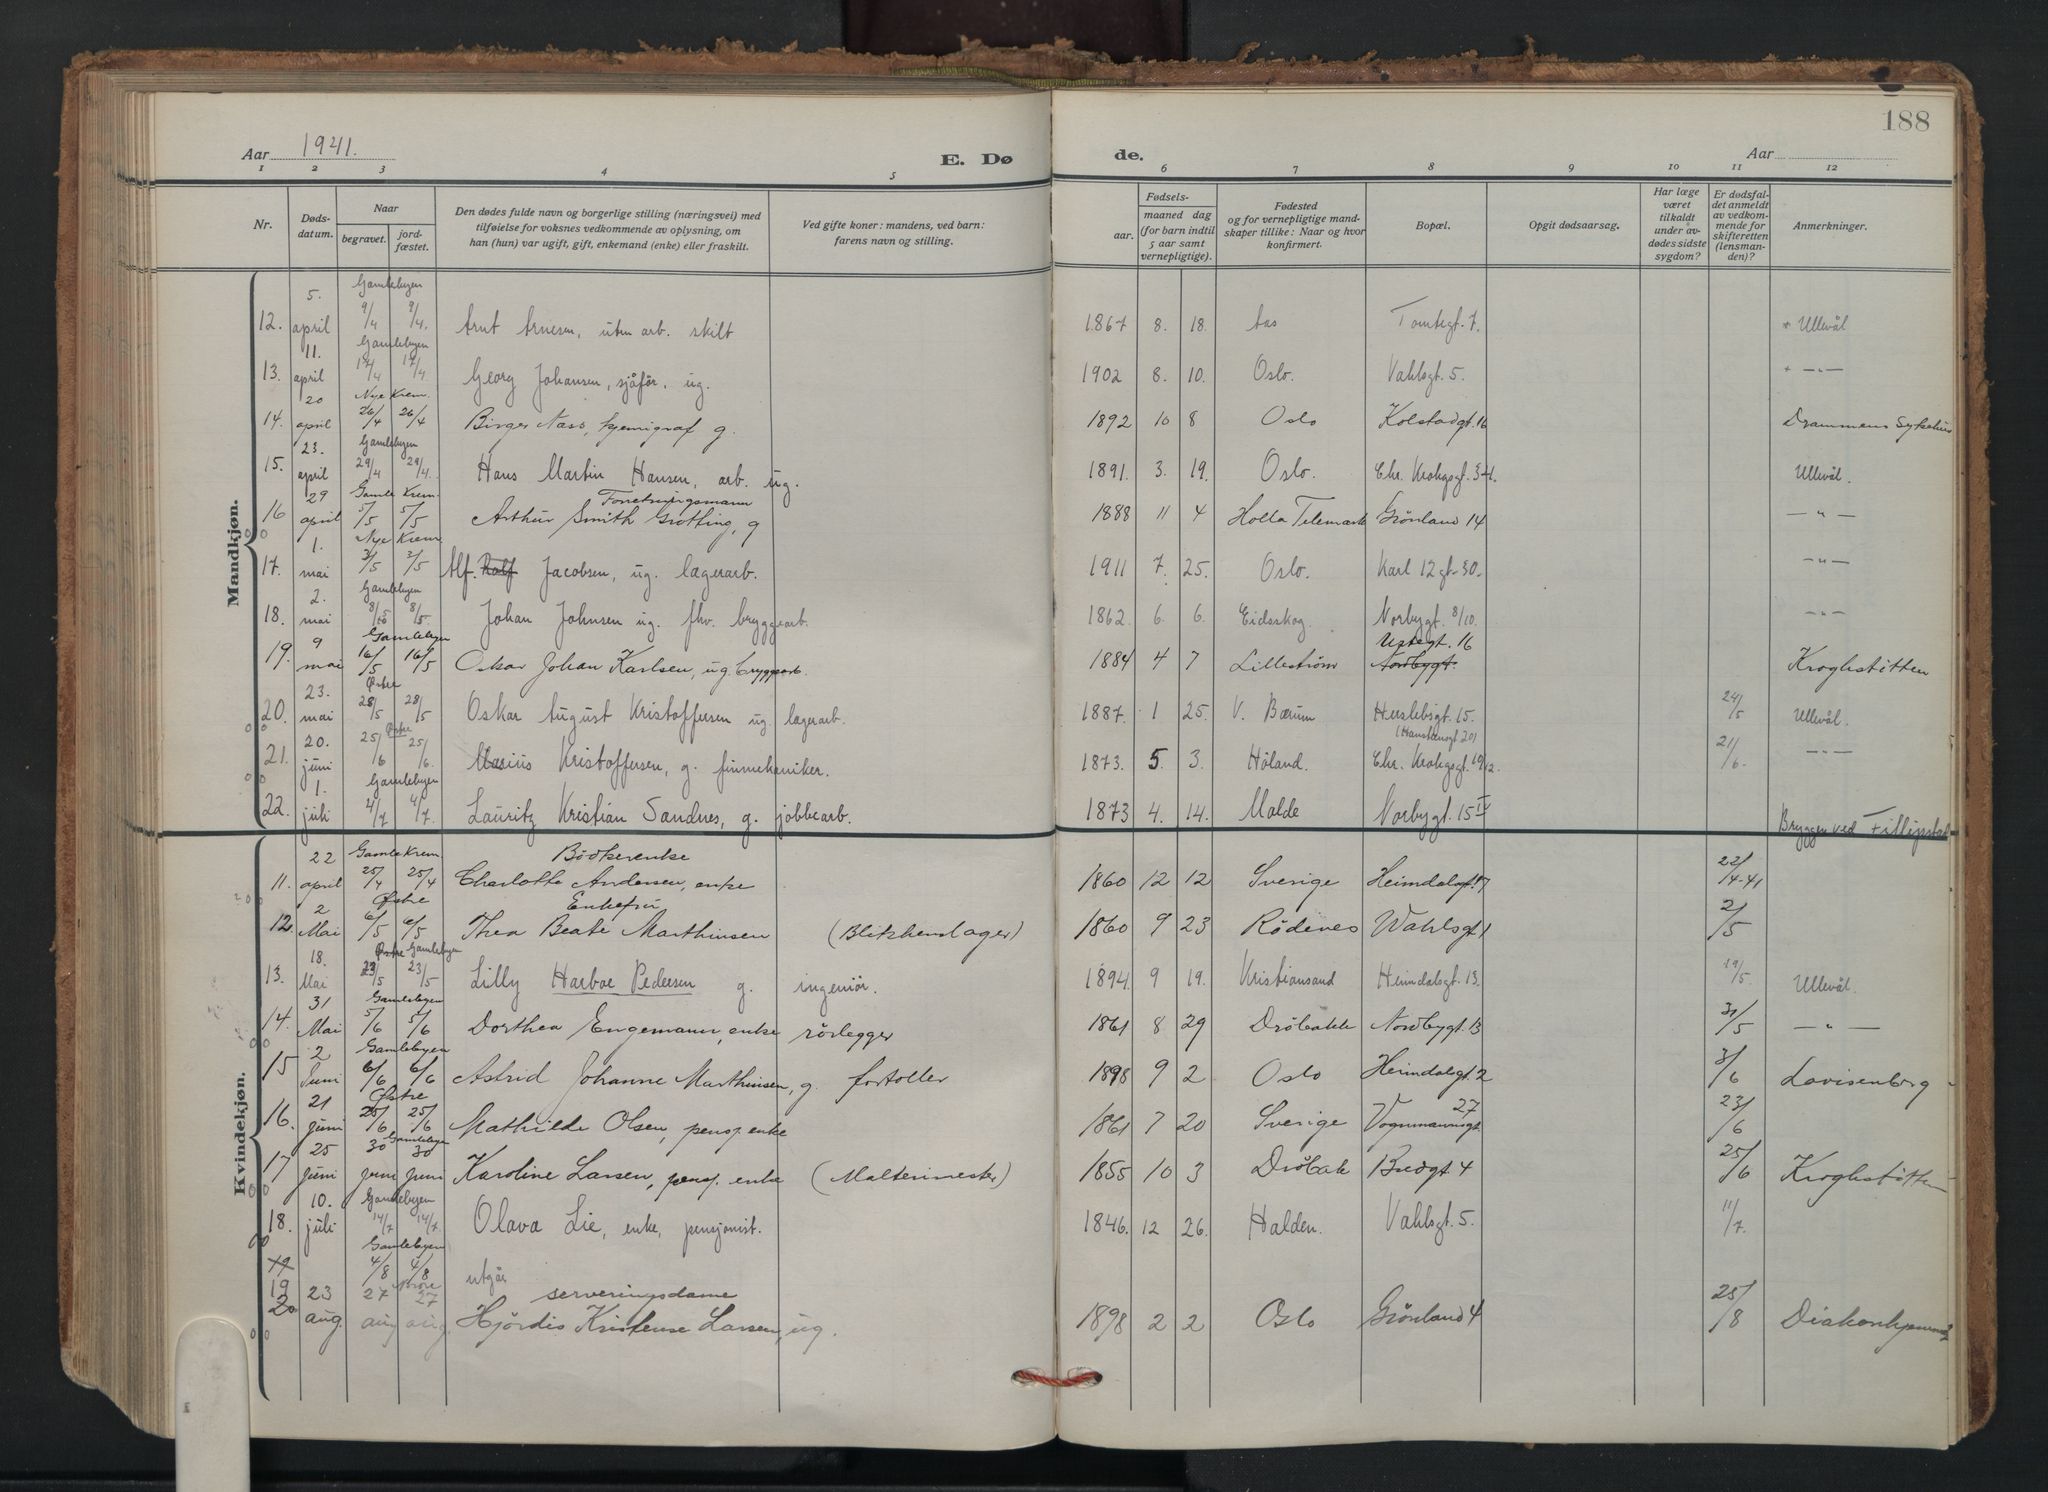 188
Aar 1941.
E. Dø
de.
Aar
1 2 3 4 5 6 7 8 9 10 11 12
Nr.
Døds-
datum.
Naar
begravet.
jord-
fæstet.
Den dødes fulde navn og borgerlige stilling (næringsvei) med
tilføielse for voksnes vedkommende av oplysning, om
han (hun) var ugift, gift, enkemand (enke) eller fraskilt.
Ved gifte koner: mandens, ved barn:
farens navn og stilling.
Fødsels-
aar.
maaned dag
(for barn indtil
5 aar samt
vernepligtige).
Fødested
og for vernepligtige mand-
skaper tillike: Naar og hvor
konfirmert.
Bopæl.
Opgit dødsaarsag.
Har læge
været
tilkaldt
under av-
dødes sidste
sygdom?
Er dødsfal-
det anmeldt
av vedkom-
mende for
skifteretten
(lensman-
den)?
Anmerkninger.
Mandkjøn.
5. Gamlebyen
12. april 9/4 9/4. Arnt Arnesen, uten arb. skilt 1867 8. 18. Aas Tomtegt. 7. + Ullevål
11. Gamlebyen
13. april 17/4 17/4 Georg Johansen, sjåför, ug. 1902 8. 10. Oslo. Vahlsgt. 5. + —„—
20 Nye Krem.
14. april 26/4 26/4 Birger Næss, kjemigraf g. 1892 10 8 Oslo Kolstadgt. 16 Drammens Sykehus
23. Gamlebyen
15. april 29/4 29/4. Hans Martin Hansen, arb. ug. 1891. 3. 19. Oslo. Chr. Krohgsgt. 34. Ullevål.
29 Gamle Krem. Forretningsmann
16 april 5/5 5/5 Arthur Smith Grotting, g 1888 11 4 Holla Telemark Grönland 14 —„—
1. Nye Krem.
17. mai 3/5 3/5 Alf. Rolf Jacobsen, ug. lagerarb. 1911 7. 25. Oslo. Karl 12 gt. 30. —„—
2. Gamlebyen
18. mai 8/5 8/5 Johan Johnsen ug. fhv. bryggearb. 1862 6. 6. Eidsskog Norbygt. 8/10. —„—
9 Gamlebyen Urtegt. 16
19. mai 16/5 16/5 Oskar Johan Karlsen, ug. bryggearb. 1884 4 7 Lilleström Nordbygt. Kroghstötten
23. Østre
20. mai 28/5 28/5 Oskar August Kristoffersen ug. lagerarb. 1887. 1 25. V. Bærum Herslebsgt. 15. 24/5 Ullevål.
20. Østre
21. juni 25/6 25/6. Marius Kristoffersen, g. finmekaniker. 1873. 5. 3. Höland. Chr. Krohgsgt. 21/6. —„—
1. Gamlebyen
22. juli 4/7 4/7. Lauritz Kristian Sandnes, g. jobbearb. 1873 4. 14. Molde Norbygt. 15 IV Bryggen ved Fillipstad
Kvindekjøn.
22 Gamle Krem. Bödkerenke
11. april 25/4 25/4 Charlotte Andersen, enke 1860 12 12 Sverige Heimdalsgt. 17 22/4-41
2 Østre Enkefru
12. Mai 6/5 6/5 Thea Beate Marthinsen (Blikkenslager) 1860 9 23 Rödenes Wahlsgt. 1 2/5
18. Østre Gamlebyen
13. Mai 23/5 23/5 Lilly Harboe Pedersen g. ingeniör. 1894. 9 19. Kristiansand Heimdalsgt. 13. 19/5. Ullevål.
31 Gamlebyen
14. Mai 5/6 5/6 Dorthea Engemann, enke rörlegger 1861 8 29 Dröbakk Nordbygt. 13 31/5 —„—
2 Gamlebyen
15 Juni 6/6 6/6 Astrid Johanne Marthinsen, g. fortoller 1898 9 2 Oslo Heimdalsgt. 2 3/6 Lovisenberg
21 Østre 27
16. Juni 25/6 25/6 Mathilde Olsen, pensj. enke 1861 7 20 Sverige Vognmannsgt 23/6
25 30 Gamlebyen 30
17 Juni Juni Juni Karoline Larsen, pensj. enke (Maltermester) 1855 10 3 Dröbak Bredgt. 4 25/6 Kroghstötten
10. Gamlebyen
18. juli 14/7 14/7. Olava Lie, enke, pensjonist. 1846. 12 26. Halden. Vahlsgt. 5. 11/7.
Gamlebyen
4/8 4/8 utgår
19 23 27 27 serveringsdame
20 aug. aug aug. Hjördis Kristense Larsen, ug. 1898 2 2 Oslo Grönland 4 25/8 Diakonhjemmet